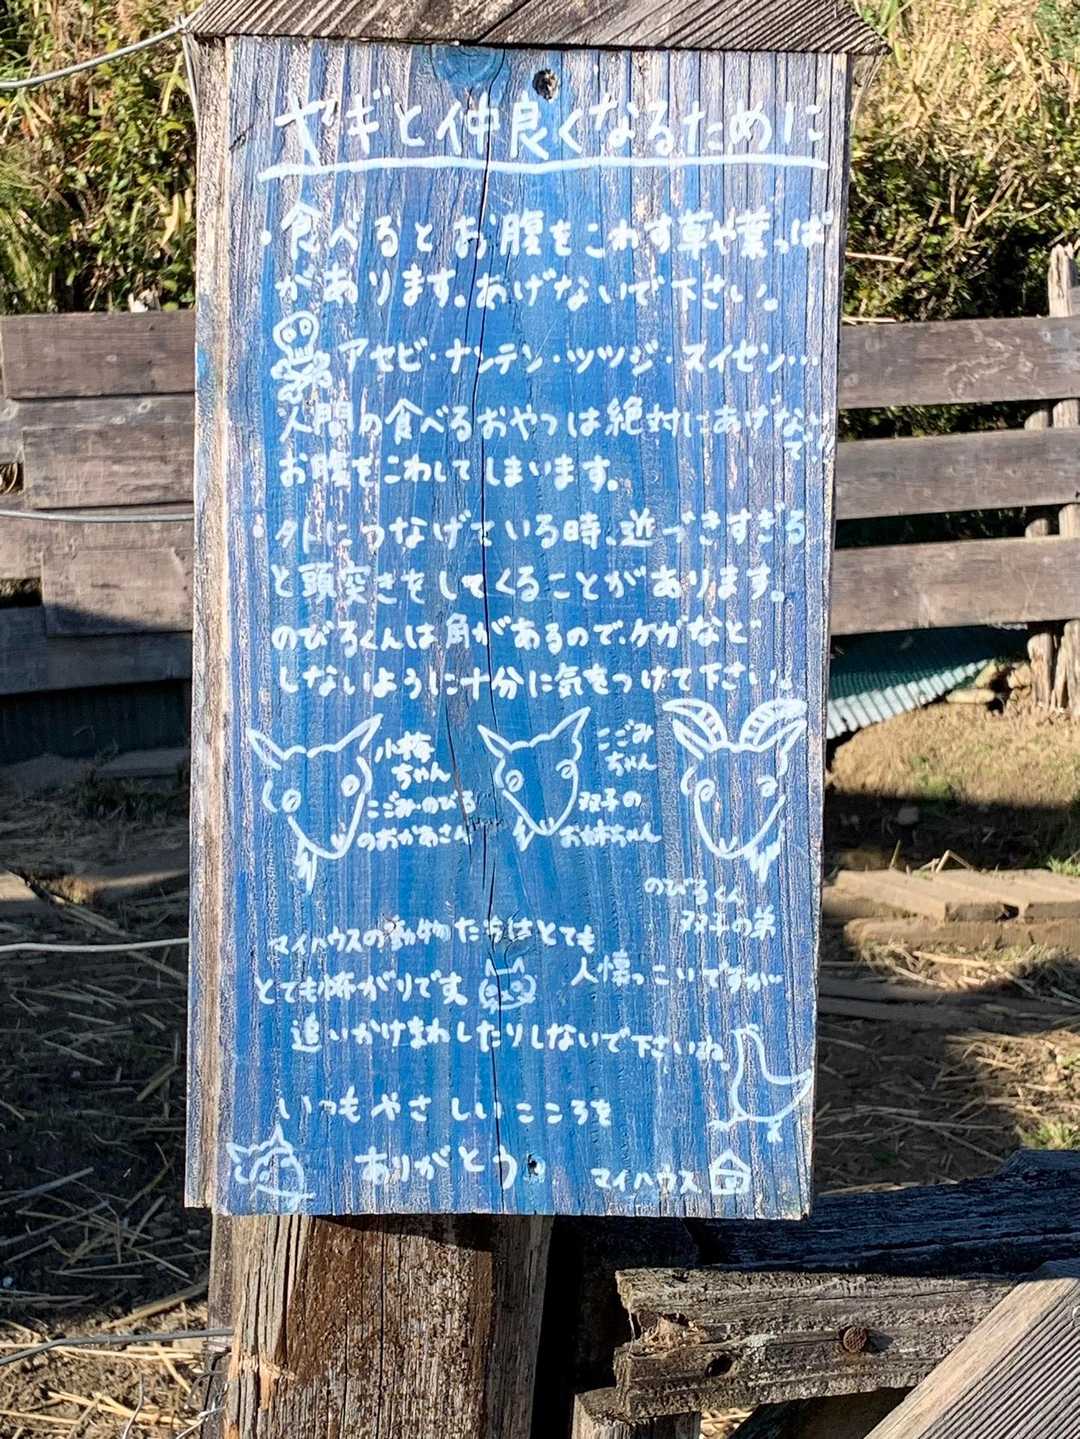 ヤギと仲良くなるために
・食べるとお腹をこわす草や葉っぱ
があります。あげないで下さい。
アセビ・ナンテン・ツツジ・スイセン…
人間の食べるおやつは絶対にあげないで!!
お腹をこわしてしまいます。
・外につなげている時、近づきすぎる
と頭突きをしてくることがあります。
のびるくんは角があるので、ケガなど
しないように十分に気をつけて下さい。
小梅
ちゃん
こごみ・のびる
のおかあさん
こごみ
ちゃん
双子の
お姉ちゃん
のびるくん
双子の弟
マイハウスの動物たちはとても
人懐っこいですが…
とても怖がりです
追いかけまわしたりしないで下さいね
いつもやさしいこころを
ありがとう
マイハウス